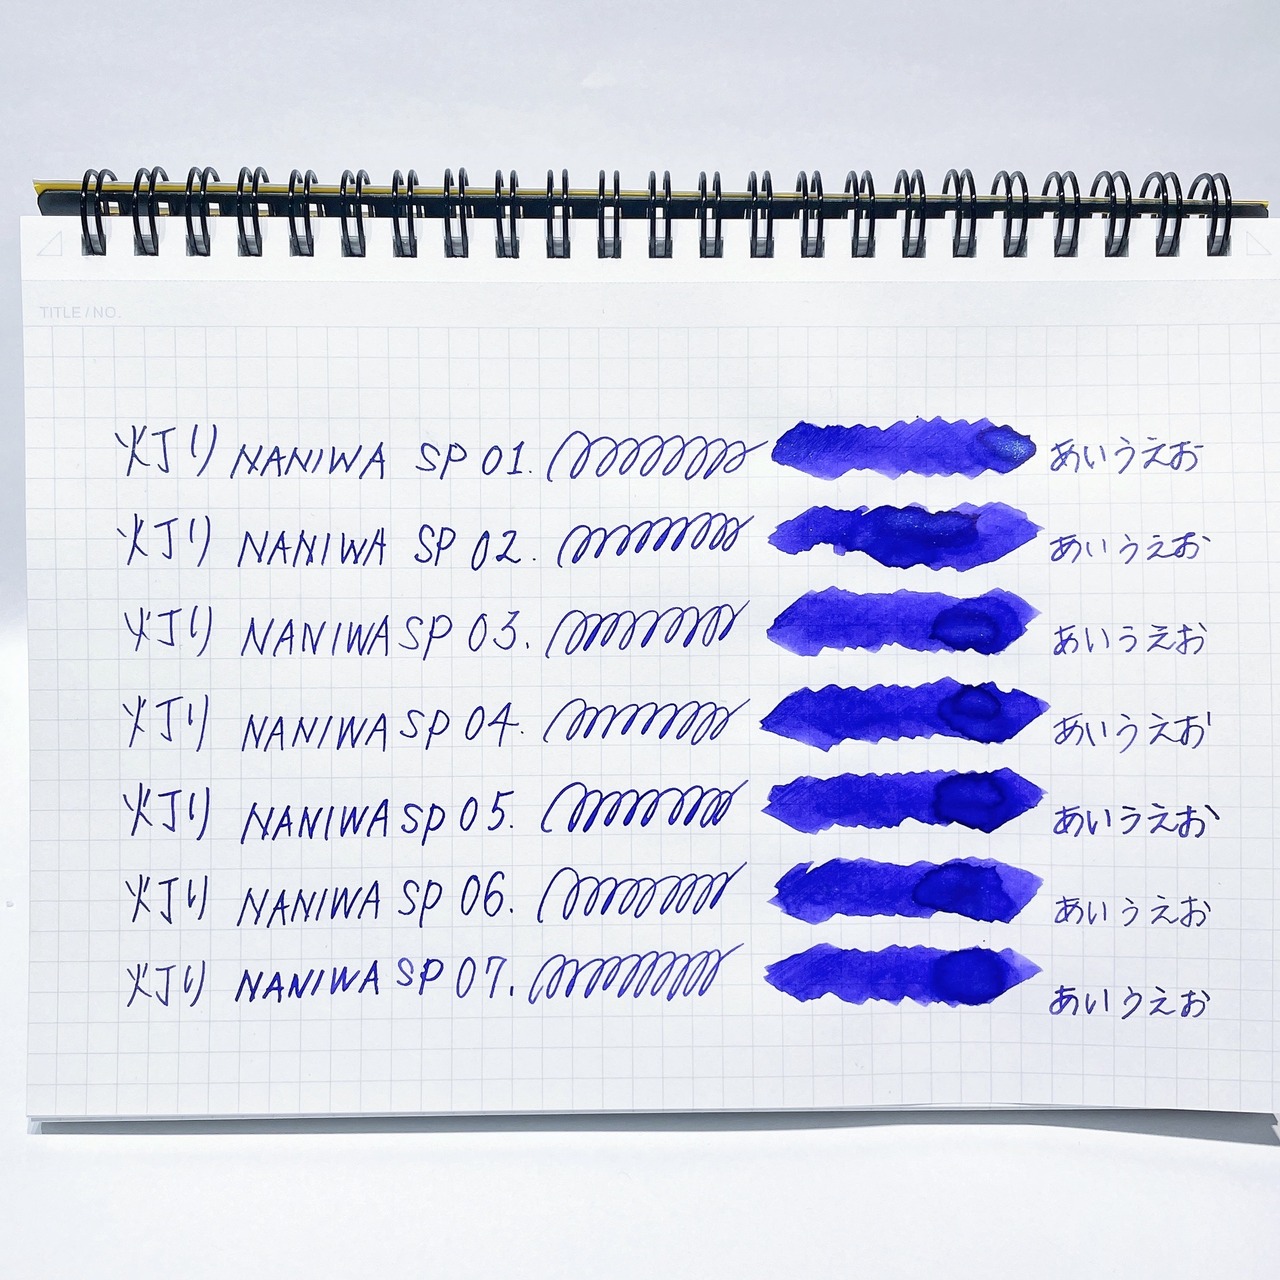 TITLE / NO.
灯り NANIWA SP 01. あいうえお
灯り NANIWA SP 02. あいうえお
灯り NANIWA SP 03. あいうえお
灯り NANIWA SP 04. あいうえお
灯り NANIWA SP 05. あいうえお
灯り NANIWA SP 06. あいうえお
灯り NANIWA SP 07. あいうえお